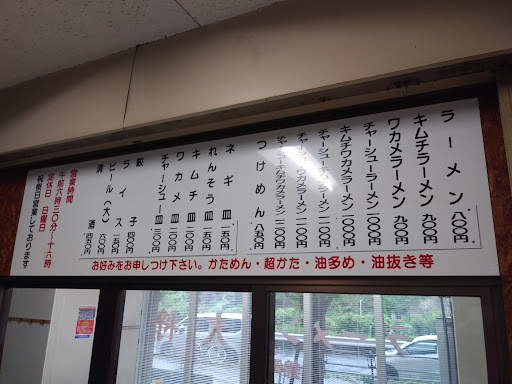 ラーメン 八〇〇円
キムチラーメン 九〇〇円
ワカメラーメン 九〇〇円
キムチワカメラーメン 一〇〇〇円
チャーシューラーメン 一〇〇〇円
つけめん 八五〇円
ネギ皿 一五〇円
れんそう皿 一五〇円
キムチ皿 二〇〇円
ワカメ皿 二〇〇円
チャーシュー皿 三〇〇円
餃子 四五〇円
ライス 一五〇円
ビール(大) 六〇〇円
清酒 四五〇円
営業時間
午前六時三〇分〜十六時
定休日 日曜日
祝祭日営業しております
お好みをお申しつけ下さい。かためん・超かた・油多め・油抜き等